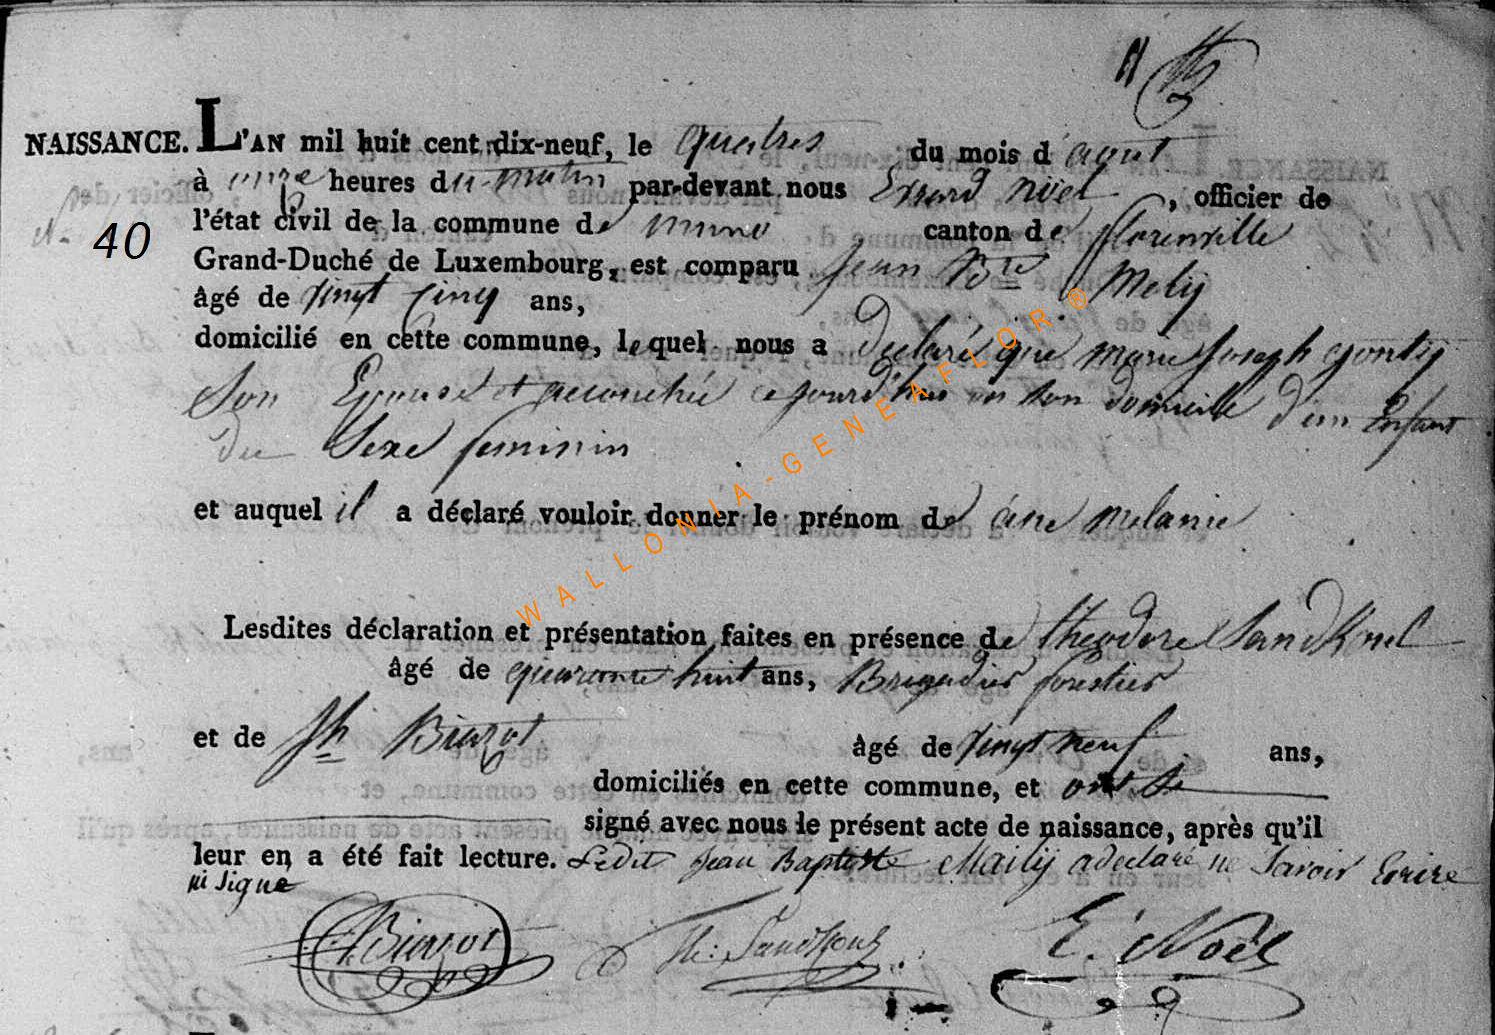 NAISSANCE. L'AN mil huit cent dix-neuf, le quatres du mois d'aout
à onze heures du matin par-devant nous Erard Noël, officier de
40
l'état civil de la commune de muno canton de florenville
Grand-Duché de Luxembourg, est comparu jean Bte Melij
âgé de vingt cinq ans,
domicilié en cette commune, lequel nous a declaré que marie joseph gontij
Son Epouse et accouchée cejourd'hui en son domicile d'un Enfant
du Sexe feminin
et auquel il a déclaré vouloir donner le prénom de ane melanie
WALLONIA-GENEAFLOR®
Lesdites déclaration et présentation faites en présence de théodore Sandkoul
âgé de quarante huit ans, Brigadier forestier
et de Jh Biazot âgé de vingt neuf ans,
domiciliés en cette commune, et ont
signé avec nous le présent acte de naissance, après qu'il
leur en a été fait lecture. Ledit Jean Baptiste Mailij a declaré ne Savoir Ecrire
ni signe
Biazot Th: Sandkoul E. Noël